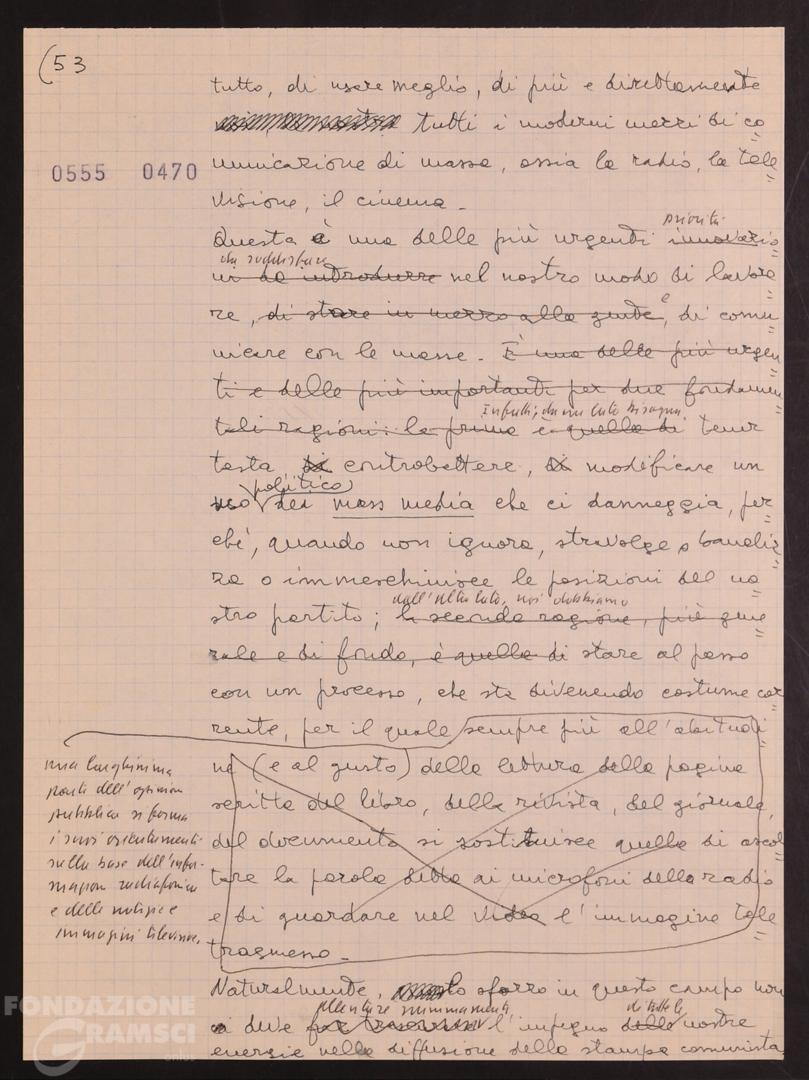 (53
0555 0470
tutto, di usare meglio, di più e direttamente
tutti i moderni mezzi di co=
municazione di massa, ossia la radio, la tele=
visione, il cinema.
priorità
Questa è una delle più urgenti innovazio=
da soddisfare
ni da introdurre nel nostro modo di lavora=
re, di stare in mezzo alla gente, e di comu=
nicare con le masse. È una delle più urgen=
ti e delle più importanti per due fondamen=
Infatti, da un lato bisogna
tali ragioni: la prima è quella di tener
testa, di controbattere, di modificare un
politico
uso dei mass media che ci danneggia, per=
ché, quando non ignora, stravolge o banaliz=
za o immeschinisce le posizioni del no=
dall'altro lato, noi dobbiamo
stro partito; la seconda ragione, più gene=
rale e di fondo, è quella di stare al passo
con un processo, che sta divenendo costume cor=
rente, per il quale sempre più all'abitudi=
ne (e al gusto) della lettura della pagina
scritta del libro, della rivista, del giornale,
del documento si sostituisce quella di ascol=
tare la parola detta ai microfoni della radio
e di guardare nel video l'immagine tele=
trasmessa.
una larghissima
parte dell'opinione
pubblica si forma
i suoi orientamenti
sulla base dell'infor-
mazione radiofonica
e delle notizie e
immagini televisive.
Naturalmente, lo sforzo in questo campo non
allentare minimamente
di tutte le
ci deve far trascurare l'impegno delle nostre
energie nella diffusione della stampa comunista,
FONDAZIONE
GRAMSCI
onlus